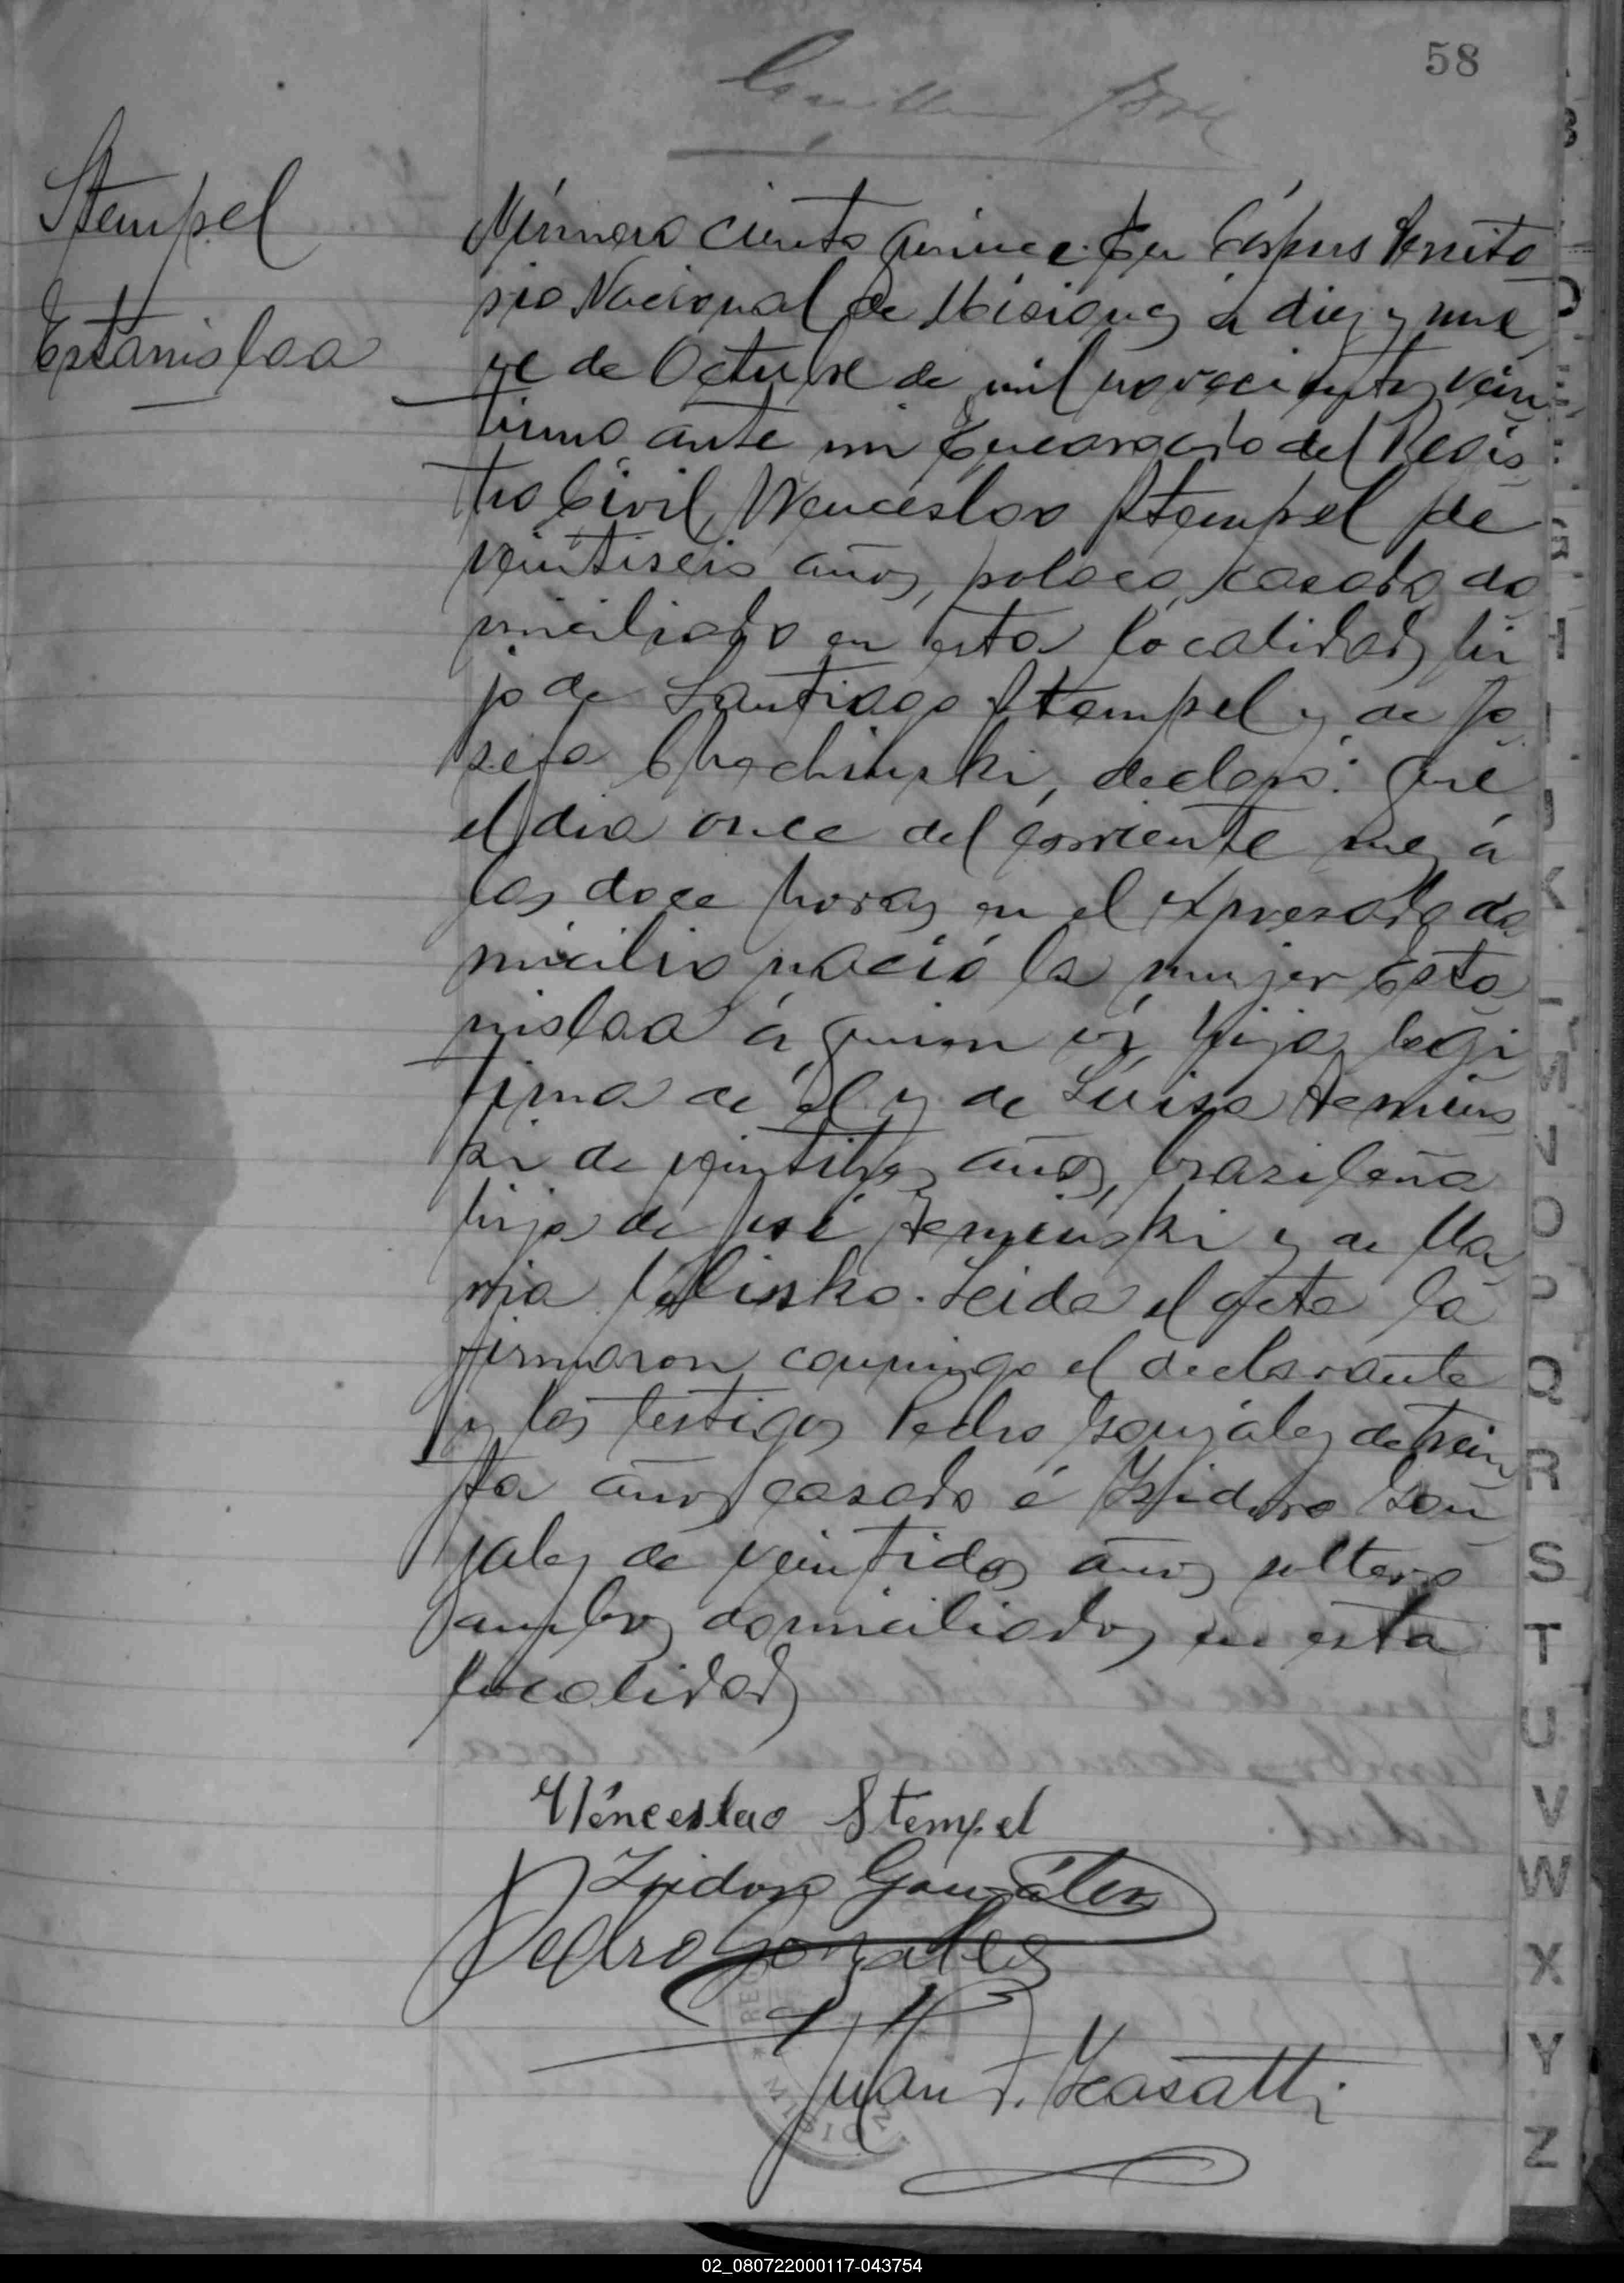 58
Stempel
Estanislaa
Número ciento quince. En Córpus Territo
rio Nacional de Misiones á diez y nue
ve de Octubre de mil novecientos vein
tiuno ante mi Encargado del Regis
tro Civil, Wenceslao Stempel de
veintiseis años, polaco, casado, do
miciliado en esta localidad, hi
jo de Santiago Stempel y de Jo
sefa declaró: Que
el dia once del corriente mes á
las doce horas en el expresado do
micilio nació la mujer Esta
nislaa á quien es hija legi
tima de él y de Luisa
ki de años, brasileña
hija de José y de Ma
ria. Leida el acta la
firmaron conmigo el declarante
y los testigos Pedro González de trein
ta años casado é Isidoro Gon
zalez de veintidos años soltero
ambos domiciliados en esta
localidad
Wenceslao Stempel
Isidoro González
Pedro Gonzalez
Juan F. Casatti
REG
MISION
B
R
H
I
J
K
M
N
O
P
Q
R
S
T
U
V
W
X
Y
Z
02_080722000117-043754